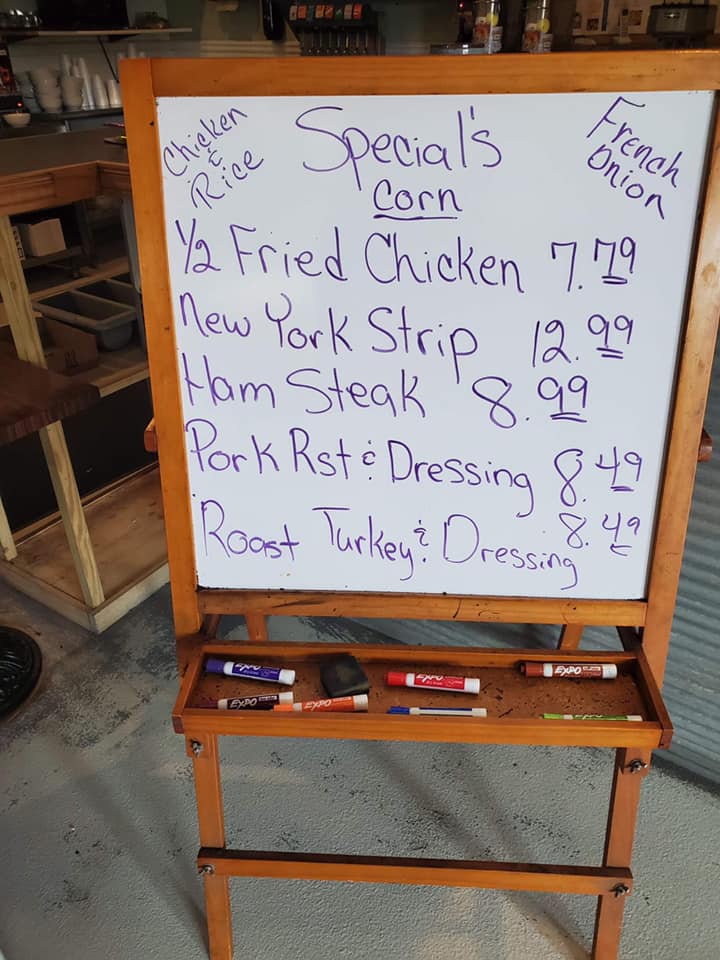 Chicken
&
Rice
Special's
French
Onion
Corn
1/2 Fried Chicken 7.79
New York Strip 12.99
Ham Steak 8.99
Pork Rst & Dressing 8.49
Roast Turkey & Dressing 8.49
EXPO
EXPO
EXPO
EXPO
EXPO